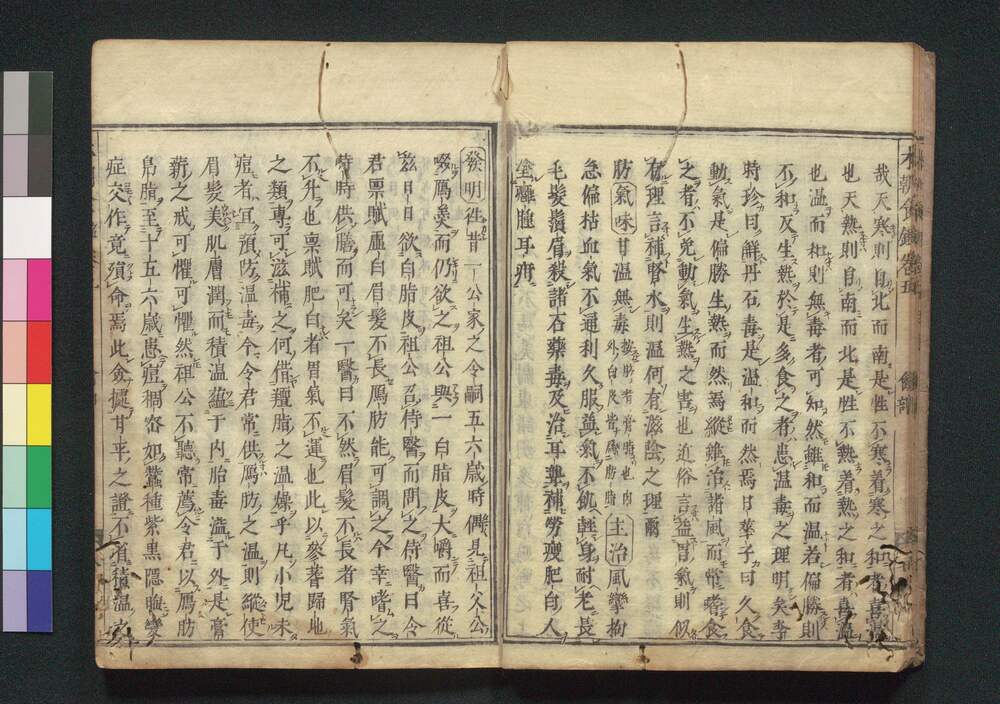 哉天寒則自北而南是性不寒着寒之和者喜
也天熱則自南而北是性不熱着熱之和者喜溫
也溫而和則無毒者可知然雖和而溫若偏勝則
不和反生熱於是多食之者患溫毒之理明矣李
時珍曰解丹石毒是溫和而然焉日華子曰久食
動氣是偏勝生熱而然焉縱雖治諸風而常嗜食
之者不免動氣生熱之害也近俗言益腎氣則似
有理言補腎水則溫何有滋陰之理爾
肪 氣味 甘溫無毒 按肪者膏脂也内外ノ白皮皆脂 主治 風攣拘
急偏枯血氣不通利久服益氣不飢輕身耐老長
毛髮鬚眉殺諸石藥毒及治耳聾補勞瘦肥白人
塗癰腫耳疳
發明 往昔一公家之令嗣五六歲時偶見祖父公
啜鴈羹而仍欲之祖公與一白脂皮大嚼而喜從
茲日日欲白脂皮祖公召侍醫而問之侍醫曰令
君禀賦虛白眉髮不長鴈肪能可調之今幸嗜之
時時供膳而可矣一醫曰不然眉髮不長者腎氣
不升也禀賦肥白者胃氣不運也此以麥蓍歸地
之類專可滋補之何借羶脂之溫燥乎凡小兒未
痘者宜預防溫毒今令君常供鴈肪之溫則縱使
眉髮美肌膚潤而積溫蘊于内胎毒溢于外是膏
薪之戒可懼可懼然祖公不聽常薦令君以鴈肪
鳧脂至十五六歲患痘稠密如蠶種紫黑隱瞈變
症交作竟殞命焉此貪攄甘平之證不省積溫
本朝食鑑卷五